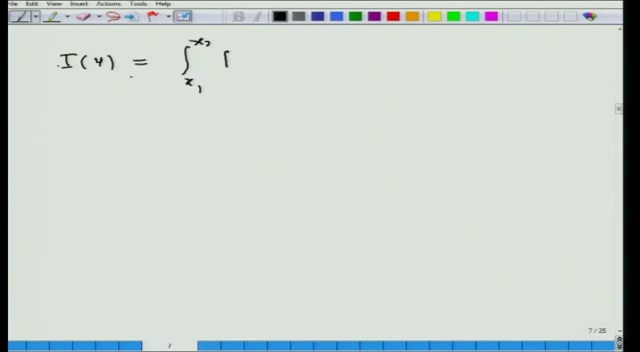 File Edit View Insert Actions Tools Help
I(y) = ∫_{x₁}^{x₂} [
7 / 25
7